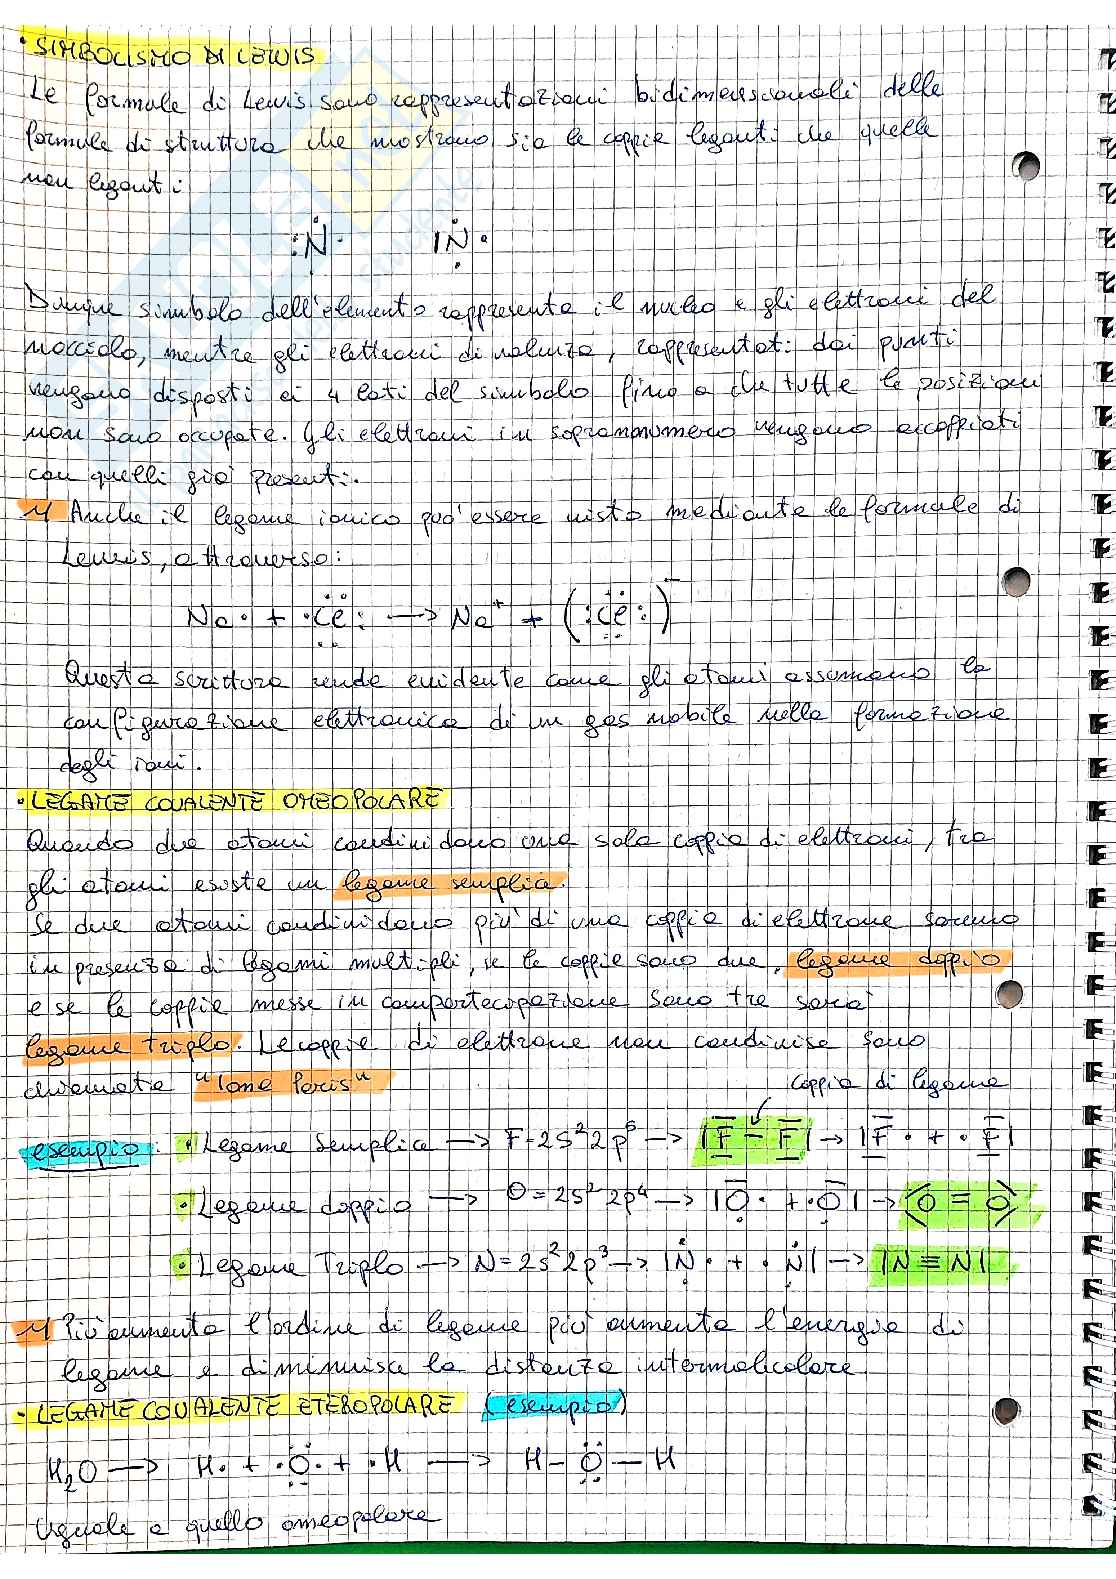 • SIMBOLISMO DI LEWIS
Le formule di Lewis sono rappresentazioni bidimensionali delle
formule di struttura che mostrano sia le coppie leganti che quelle
non leganti:
:Ṅ· |Ṅ·
Dunque simbolo dell'elemento rappresenta il nucleo e gli elettroni del
nocciolo, mentre gli elettroni di valenza, rappresentati dai punti
vengono disposti ai 4 lati del simbolo fino a che tutte le posizioni
non sono occupate. Gli elettroni in soprannumero vengono accoppiati
con quelli già presenti.
Anche il legame ionico può essere visto mediante le formule di
Lewis, attraverso:
Na· + ·Cl: → Na⁺ + (:Cl:)⁻
Questa scrittura rende evidente come gli atomi assumano la
configurazione elettronica di un gas nobile nella formazione
degli ioni.
• LEGAME COVALENTE OMEOPOLARE
Quando due atomi condividono una sola coppia di elettroni, tra
gli atomi esiste un legame semplice.
Se due atomi condividono più di una coppia di elettrone saremo
in presenza di legami multipli, se le coppie sono due, legame doppio
e se le coppie messe in compartecipazione sono tre sarà
legame triplo. Le coppie di elettrone non condivise sono
chiamate "lone paris"
coppia di legame
esempio: • Legame semplice → F = 2s²2p⁵ → |F – F| → |F· + ·F|
• Legame doppio → O = 2s²2p⁴ → |O· + ·O| → ⟨O = O⟩
• Legame Triplo → N = 2s²2p³ → |N· + ·N| → |N ≡ N|
Più aumenta l'ordine di legame più aumenta l'energia di
legame e diminuisce la distanza intermolicolare
• LEGAME COVALENTE ETEROPOLARE (esempio)
H₂O → H· + ·O· + ·H → H – O – H
Uguale a quello omeopolare